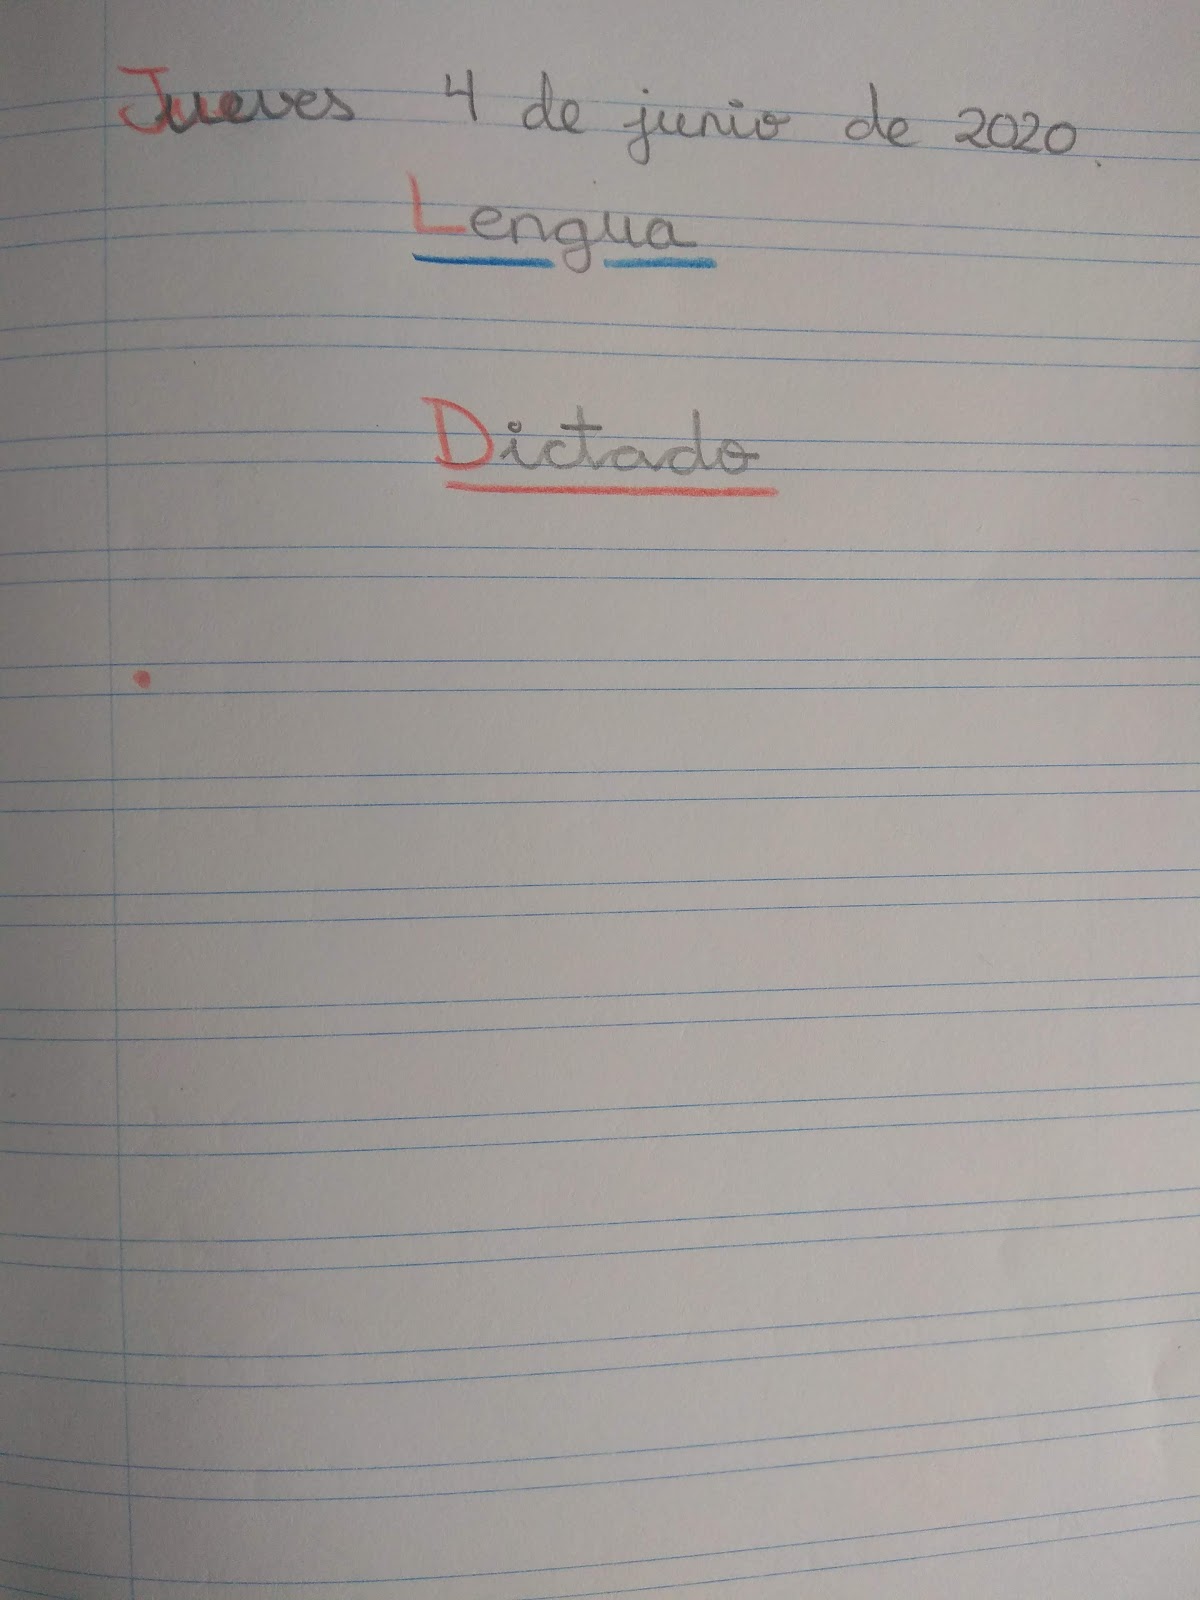 Jueves 4 de junio de 2020.
Lengua
Dictado